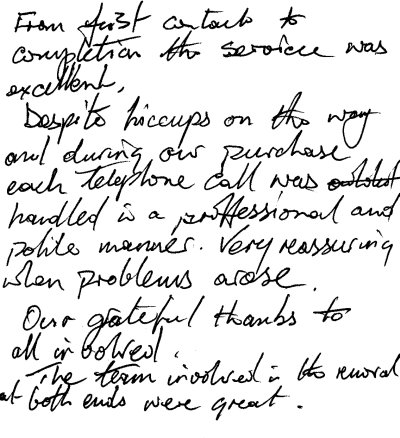 From first contact to
completion the service was
excellent.
Despite hiccups on the way
and during our purchase
each telephone call was
handled in a proffessional and
polite manner. Very reassuring
when problems arose.
Our grateful thanks to
all involved.
The team involved in the removal
at both ends were great.